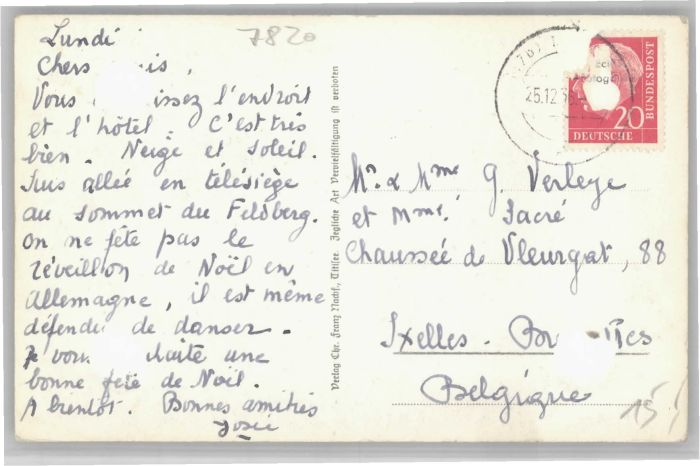 Lundi
7820
Chers
Vous l'endroit
et l'hôtel. C'est très
bien. Neige et soleil.
Suis allée en télésiège
au sommet du Feldberg.
On ne fête pas le
réveillon de Noël en
Allemagne, il est même
défendu de danser.
Je une
bonne fête de Noël.
A bientôt. Bonnes amitiés
Josée
Verlag Chr. Franz Nachf., Titisee. Jegliche Art Vervielfältigung ist verboten
25.12.56
20
DEUTSCHE
BUNDESPOST
Mr. & Mme G. Verleye
et Mme. Sacré
Chaussée de Vleurgat, 88
Ixelles.
Belgique
15